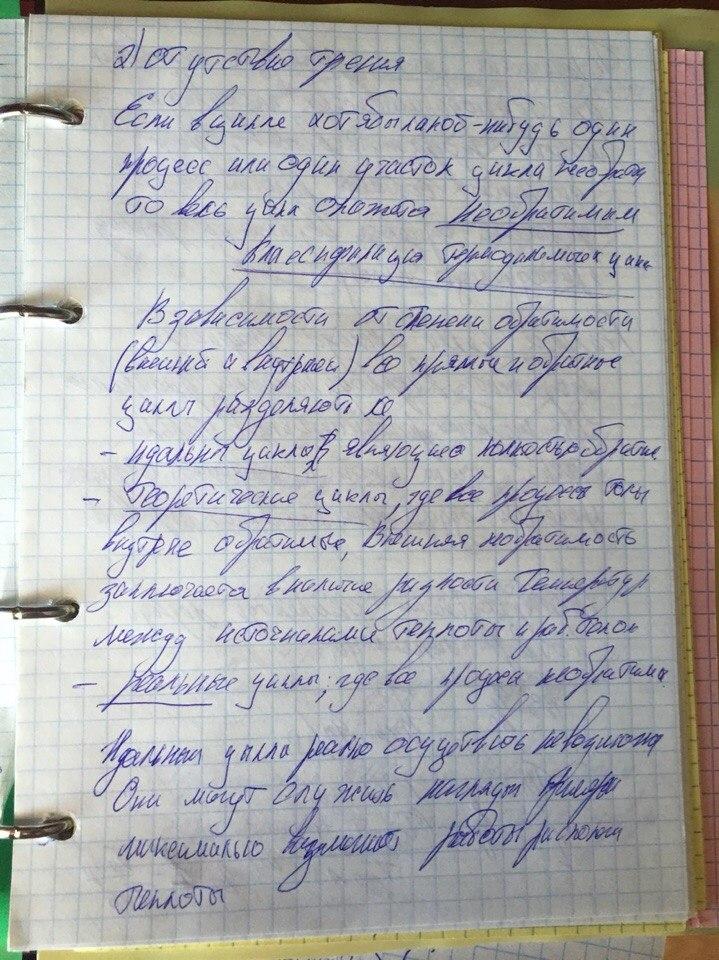 2) отсутствие трения
Если в цикле хотябы какой-нибудь один
процесс или один участок цикла необрати
то весь цикл окажется необратимым
Классификация термодинамических цикл
В зависимости от степени обратимости
(внешней и внутренней) все прямые и обратные
циклы разделяють на
- идальный циклы, являющиеся полностью обратим
- Теоретические циклы, где все процессы
внутрене обратимые, Внешняя необратимость
заключается в наличие разности Температур
между источниками теплоты и раб. телом
- реальные циклы; где все процессы необратимы.
Идальный цикла реально осуществить невозможно
Они могут служить наглядн
максимально возможной работы
теплоты